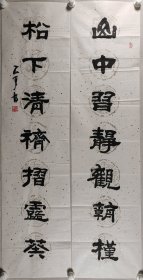 山中習靜觀朝槿
松下清齋摺露葵